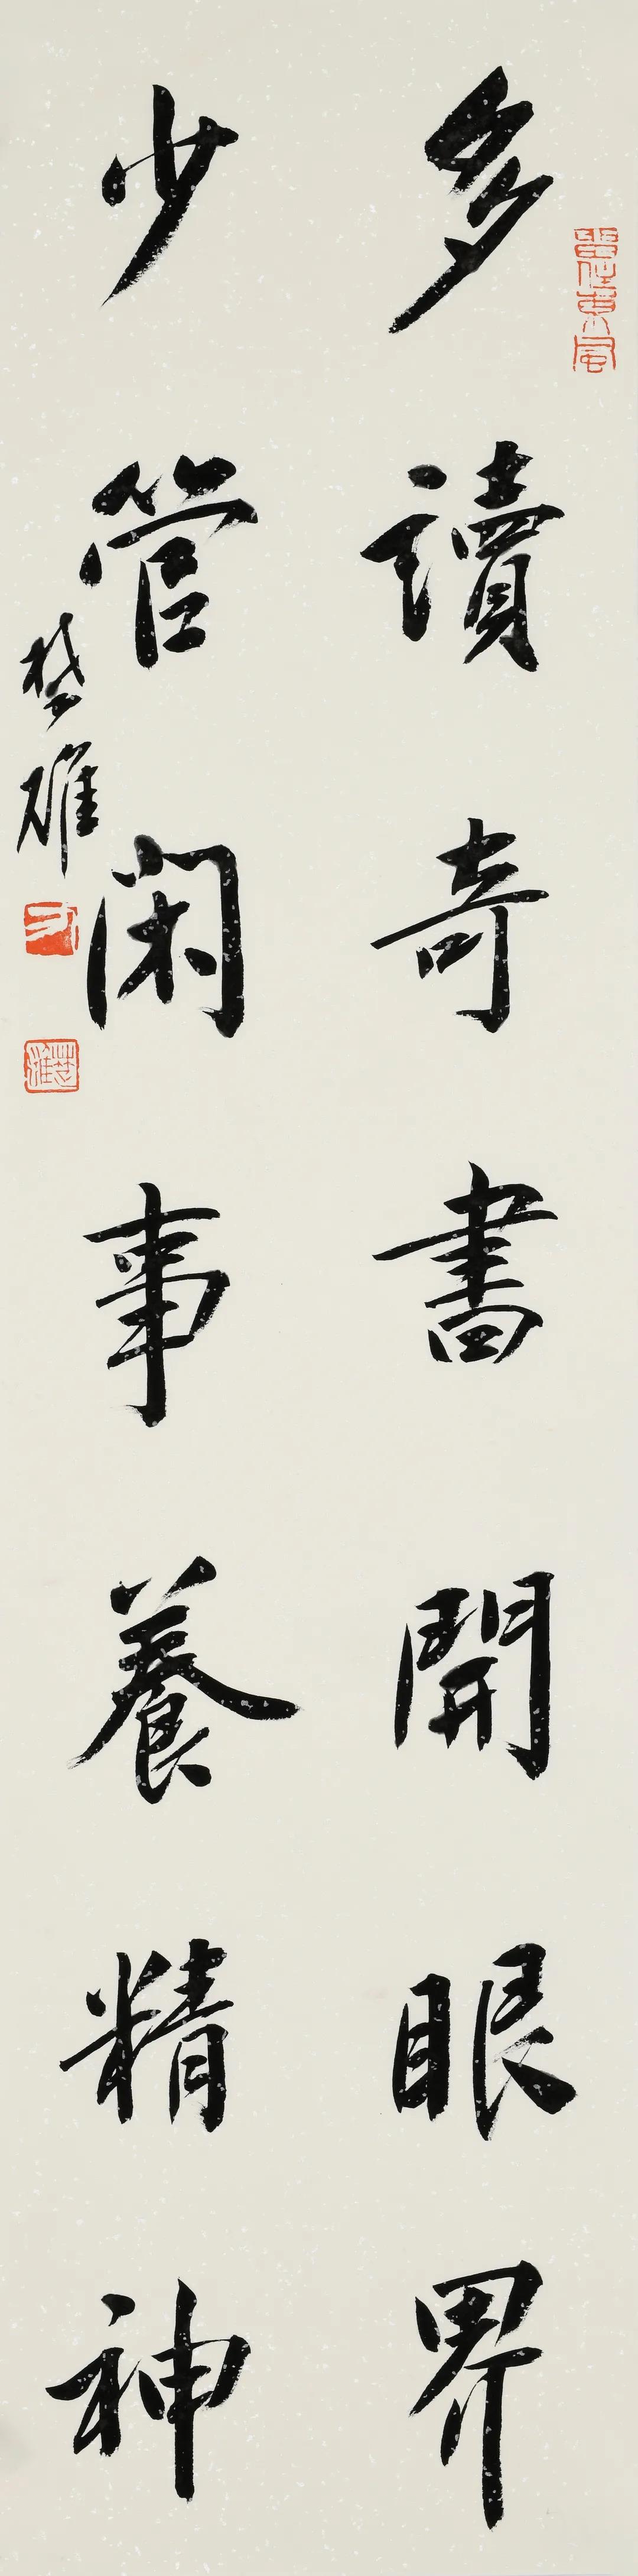 多讀奇書開眼界
少管閑事養精神
楚雄